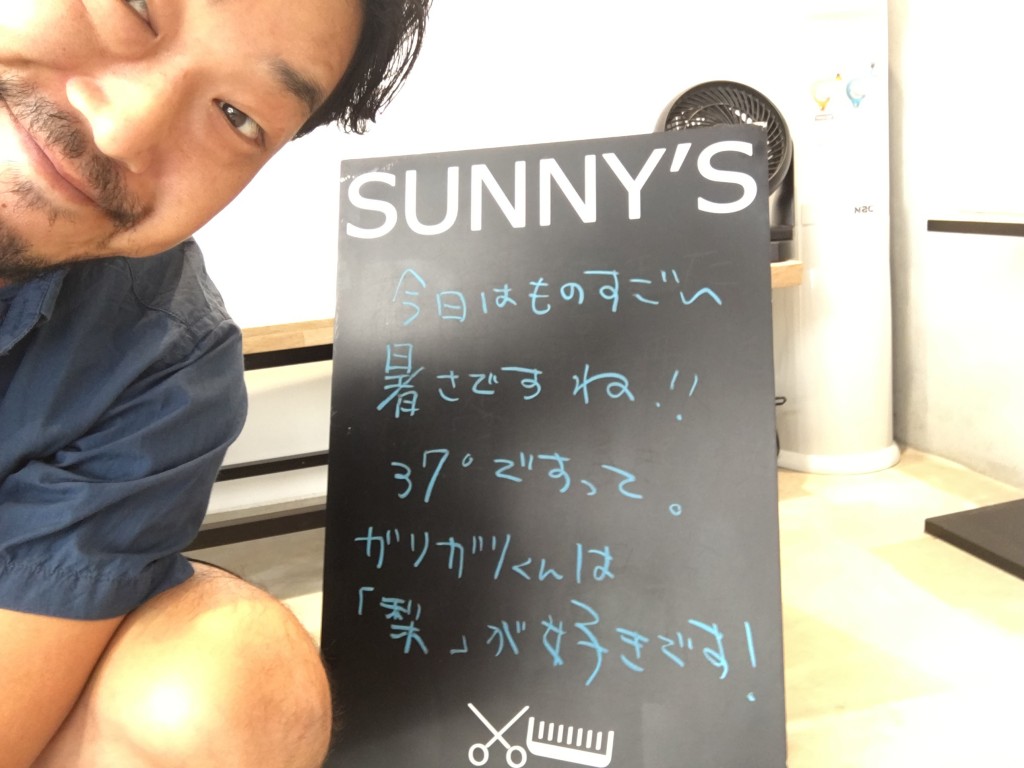 SUNNY'S
今日はものすごい
暑さですね!!
37°ですって。
ガリガリくんは
「梨」が好きです!